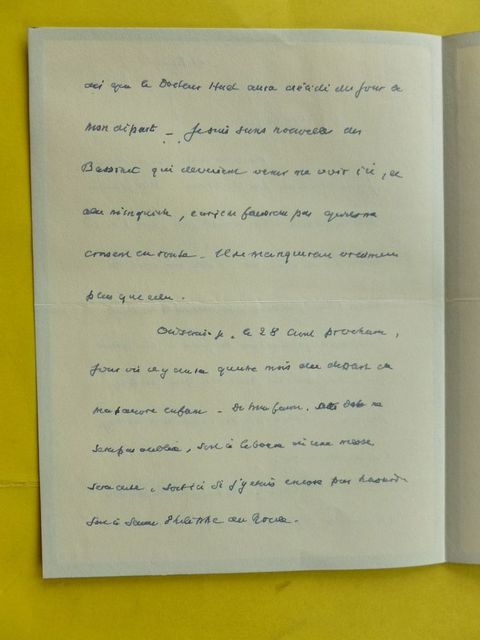 dès que le Docteur Huel aura décidé du jour de
mon départ - Je suis sans nouvelles des
Bassinet qui devaient venir me voir ici, et
cela m'inquiète,
en route - Il ne manquerait vraiment
plus que cela.
Où serai-je le 28 Avril prochain,
jour où il y aura quinze mois du départ de
ma pauvre enfant - De ma façon, cette date ne
sera pas oubliée, soit à où une messe
sera dite, soit ici si j'y suis encore par hasard,
soit à Saint Philippe du Roule.